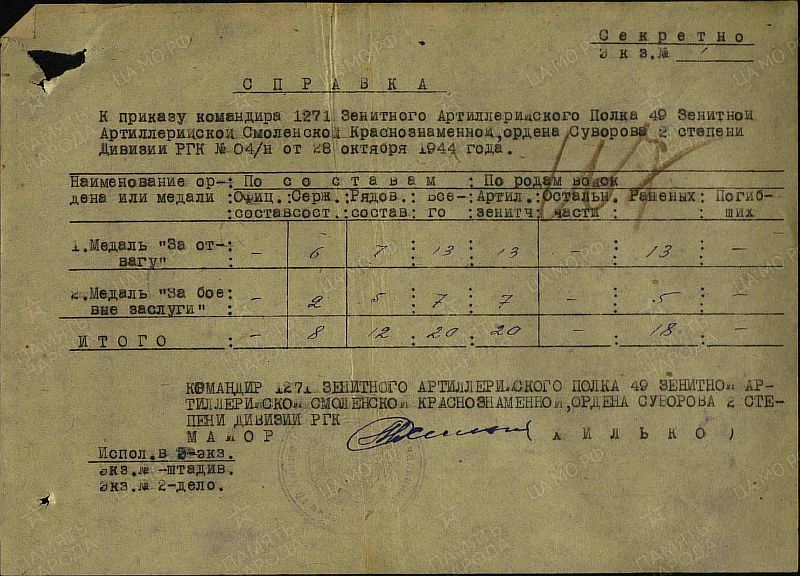 Секретно
Экз.№ 1
СПРАВКА
К приказу командира 1271 Зенитного Артиллерийского Полка 49 Зенитной
Артиллерийской Смоленской Краснознаменной,ордена Суворова 2 степени
Дивизии РГК № 04/н от 28 октября 1944 года.
Наименование ор-: По составам : По родам войск
дена или медали :Офиц.:Серж.:Рядов.: Все-:Артил.:Остальн. Раненых: Погиб-
:состав:сост.:состав : го :зенитч: части : : ших
1.Медаль "За от- : - 6 7 : 13 : 13 : - : 13 : -
вагу" :
2.Медаль "За бое: - 2 5 : 7 : 7 : - : 5 : -
вые заслуги" :
ИТОГО : - 8 12 : 20 : 20 : - : 18 : -
КОМАНДИР 1271 ЗЕНИТНОГО АРТИЛЛЕРИЙСКОГО ПОЛКА 49 ЗЕНИТНОЙ АР-
ТИЛЛЕРИЙСКОЙ СМОЛЕНСКОЙ КРАСНОЗНАМЕННОЙ,ОРДЕНА СУВОРОВА 2 СТЕ-
ПЕНИ ДИВИЗИИ РГК
МАЙОР ХИЛЬКО )
Испол.в 2-экз.
Экз.№ -штадив.
Экз.№ 2-дело.